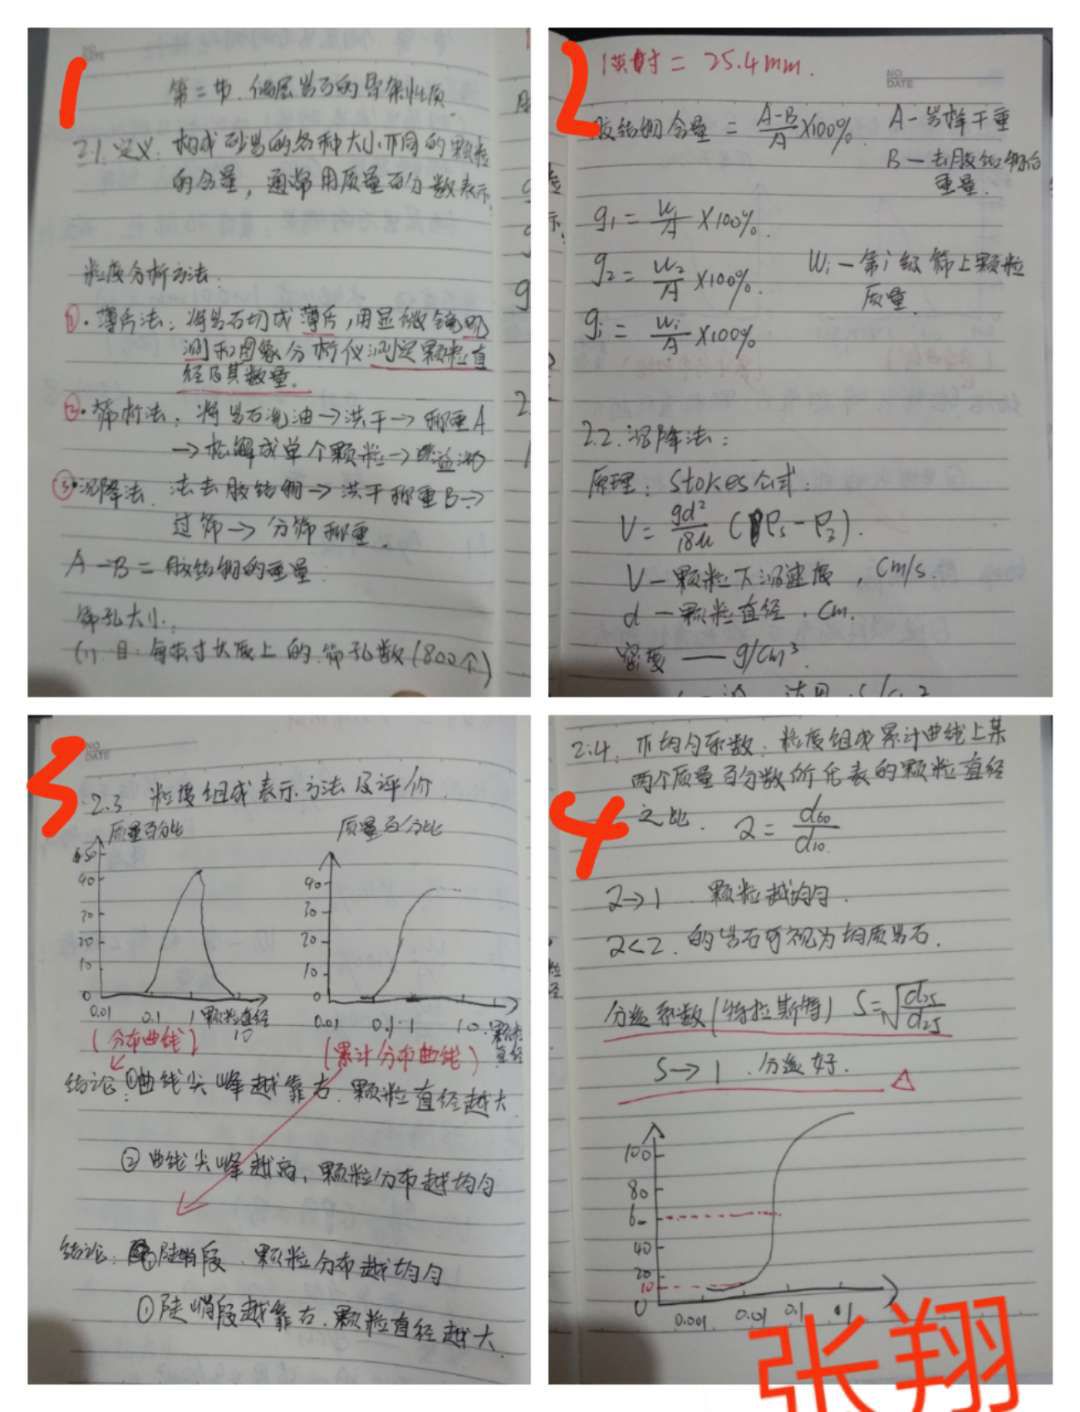 1
第二节.储层岩石的骨架性质
2.1.定义.构成砂岩的各种大小不同的颗粒
的含量,通常用质量百分数表示.
粒度分析方法.
①.薄片法:将岩石切成薄片,用显微镜观
测和图象分析仪测定颗粒直
径及其数量.
②.筛析法:将岩石洗油→洪干→称重A
→松解成单个颗粒→
③.沉降法.法去胶结物→洪干称重B→
过筛→分筛称重.
A-B=胶结物的重量.
筛孔大小:
(1)目:每英寸长度上的筛孔数(800个)
2
1英寸=25.4mm.
NO
DATE
胶结物含量=A-B/A×100%
A-岩样干重
B-去胶结物后
重量.
g1=W1/A×100%.
g2=W2/A×100%.
Wi-第i级筛上颗粒
质量.
gi=Wi/A×100%
2.2.沉降法:
原理:Stokes公式:
V=gd²/18μ(ρs-ρ2).
V-颗粒下沉速度,cm/s.
d-颗粒直径.cm.
密度—g/cm³.
3
NO
DATE
2.3 粒度组成表示方法及评价.
质量百分比
50
40
30
20
10
0
0.01 0.1 1 10
颗粒直径
(分布曲线)
质量百分比
40
30
20
10
0
0.01 0.1 1 10.颗粒
直径
(累计分布曲线)
结论:①曲线尖峰越靠右.颗粒直径越大
②曲线尖峰越高,颗粒分布越均匀
结论:陡峭段.颗粒分布越均匀
①陡峭段越靠右.颗粒直径越大.
4
2.4.不均匀系数.粒度组成累计曲线上某
两个质量百分数所代表的颗粒直径
之比. 2=d60/d10.
2→1 颗粒越均匀.
2<2.的岩石可视为均质岩石.
分选系数(特拉斯特) S=√d75/d25
S→1.分选好. △
100
80
6
40
20
10
0
0.001 0.01 0.1 1
张翔